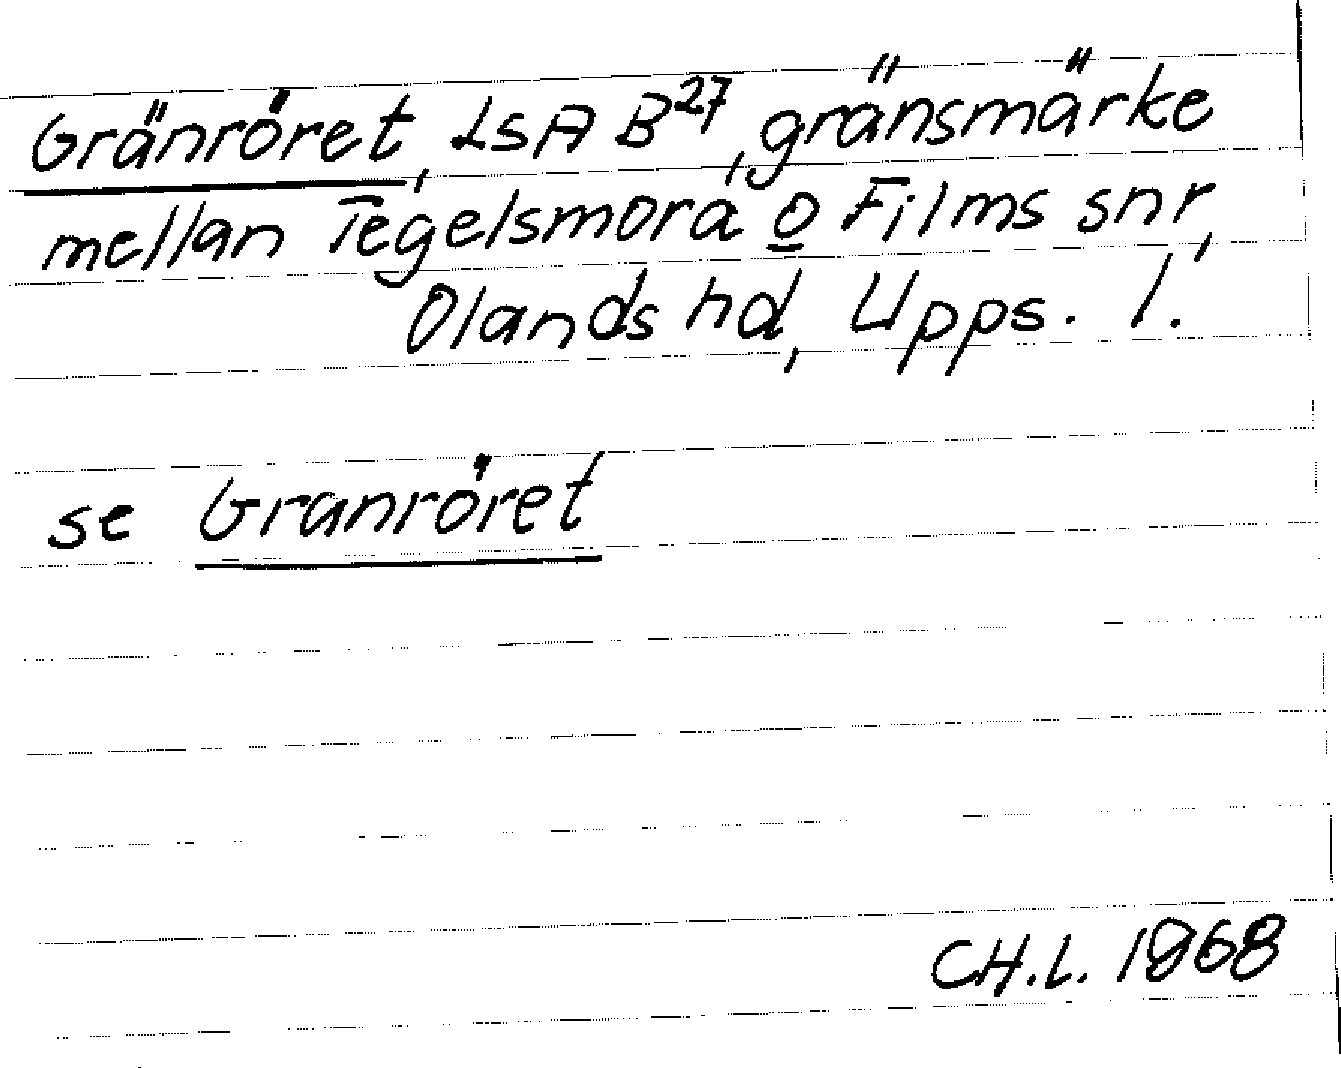 Gränröret, LSA B27, gränsmärke
mellan Tegelsmora o Films snr,
Olands hd, Upps. l.
se Granröret
CH.L. 1968